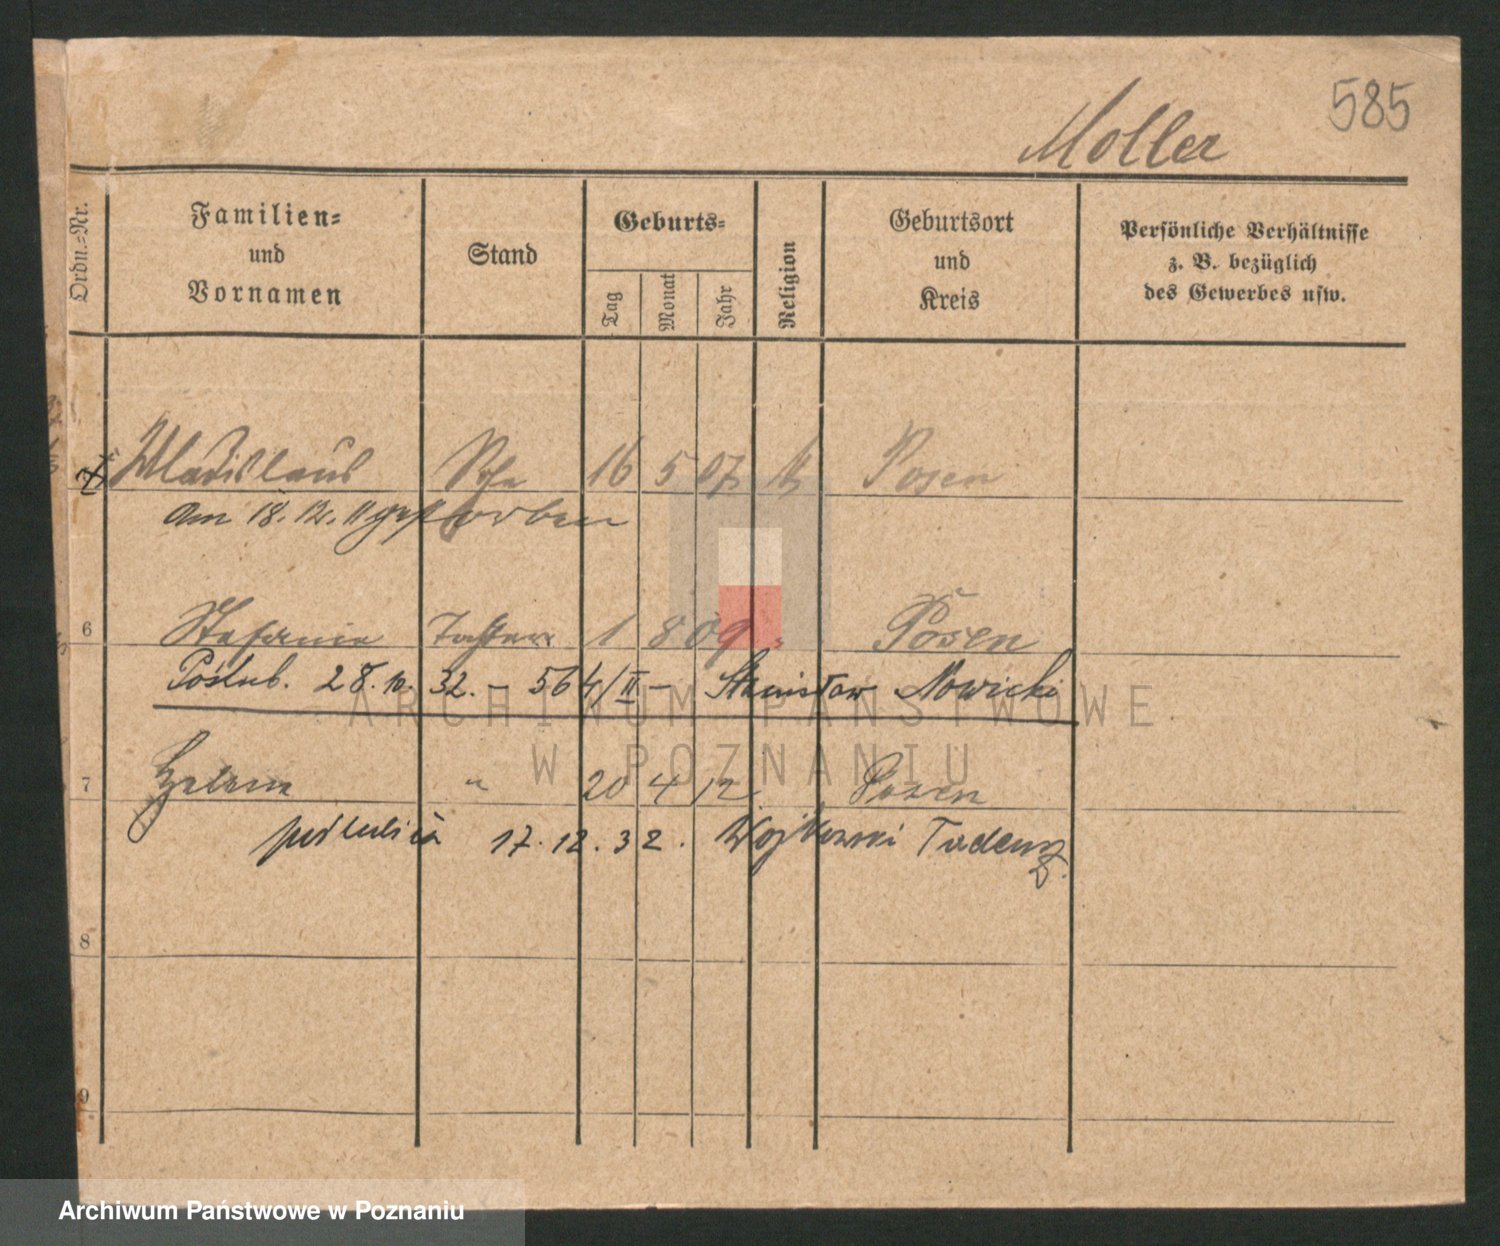 585
Moller
Ordn.-Nr.
Familien-
und
Vornamen
Stand
Geburts-
Tag
Monat
Jahr
Religion
Geburtsort
und
Kreis
Persönliche Verhältnisse
z. B. bezüglich
des Gewerbes usw.
Wladislaus 16 5 07 Posen
am 18. 12. 11 gestorben
6 Stefanie Tochter 1 8 09 " Posen
Poślub. 28.10. 32. – 564/II – Stanisław Nowicki
7 Helene " 20 4 12 Posen
poślubiła 17.12.32. Wojtkowski Tadeusz.
8
9
ARCHIWUM PAŃSTWOWE
W POZNANIU
Archiwum Państwowe w Poznaniu